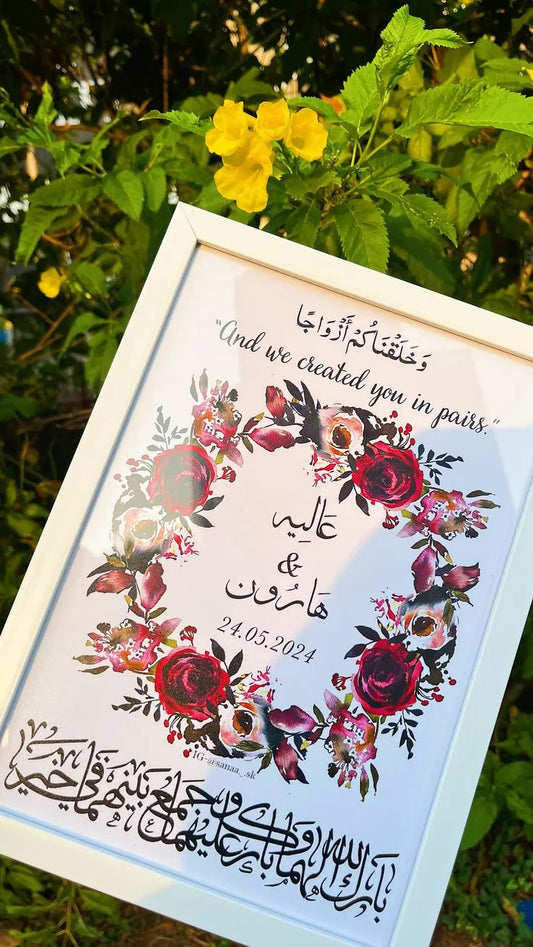 وَخَلَقْنَاكُمْ أَزْوَاجًا
"And we created you in pairs."
عَالِيه
&
هَارُون
24.05.2024
IG-@sanaa_.sk
بَارَكَ اللهُ لَهُمَا وَبَارَكَ عَلَيْهِمَا وَجَمَعَ بَيْنَهُمَا فِي خَيْرٍ